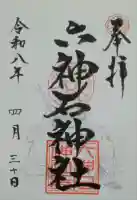 奉拝
六神石神社
令和八年
四月三十日